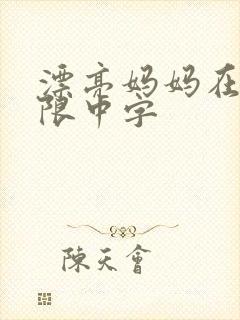 漂亮妈妈在
限中字
陳天會